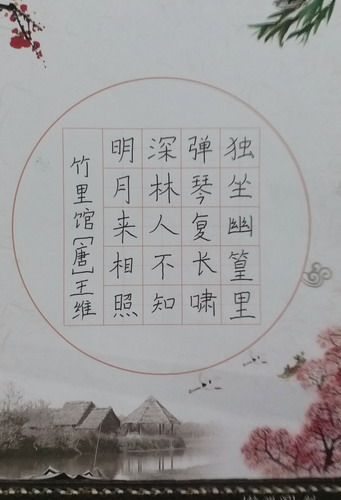 独坐幽篁里
弹琴复长啸
深林人不知
明月来相照
竹里馆［唐］王维